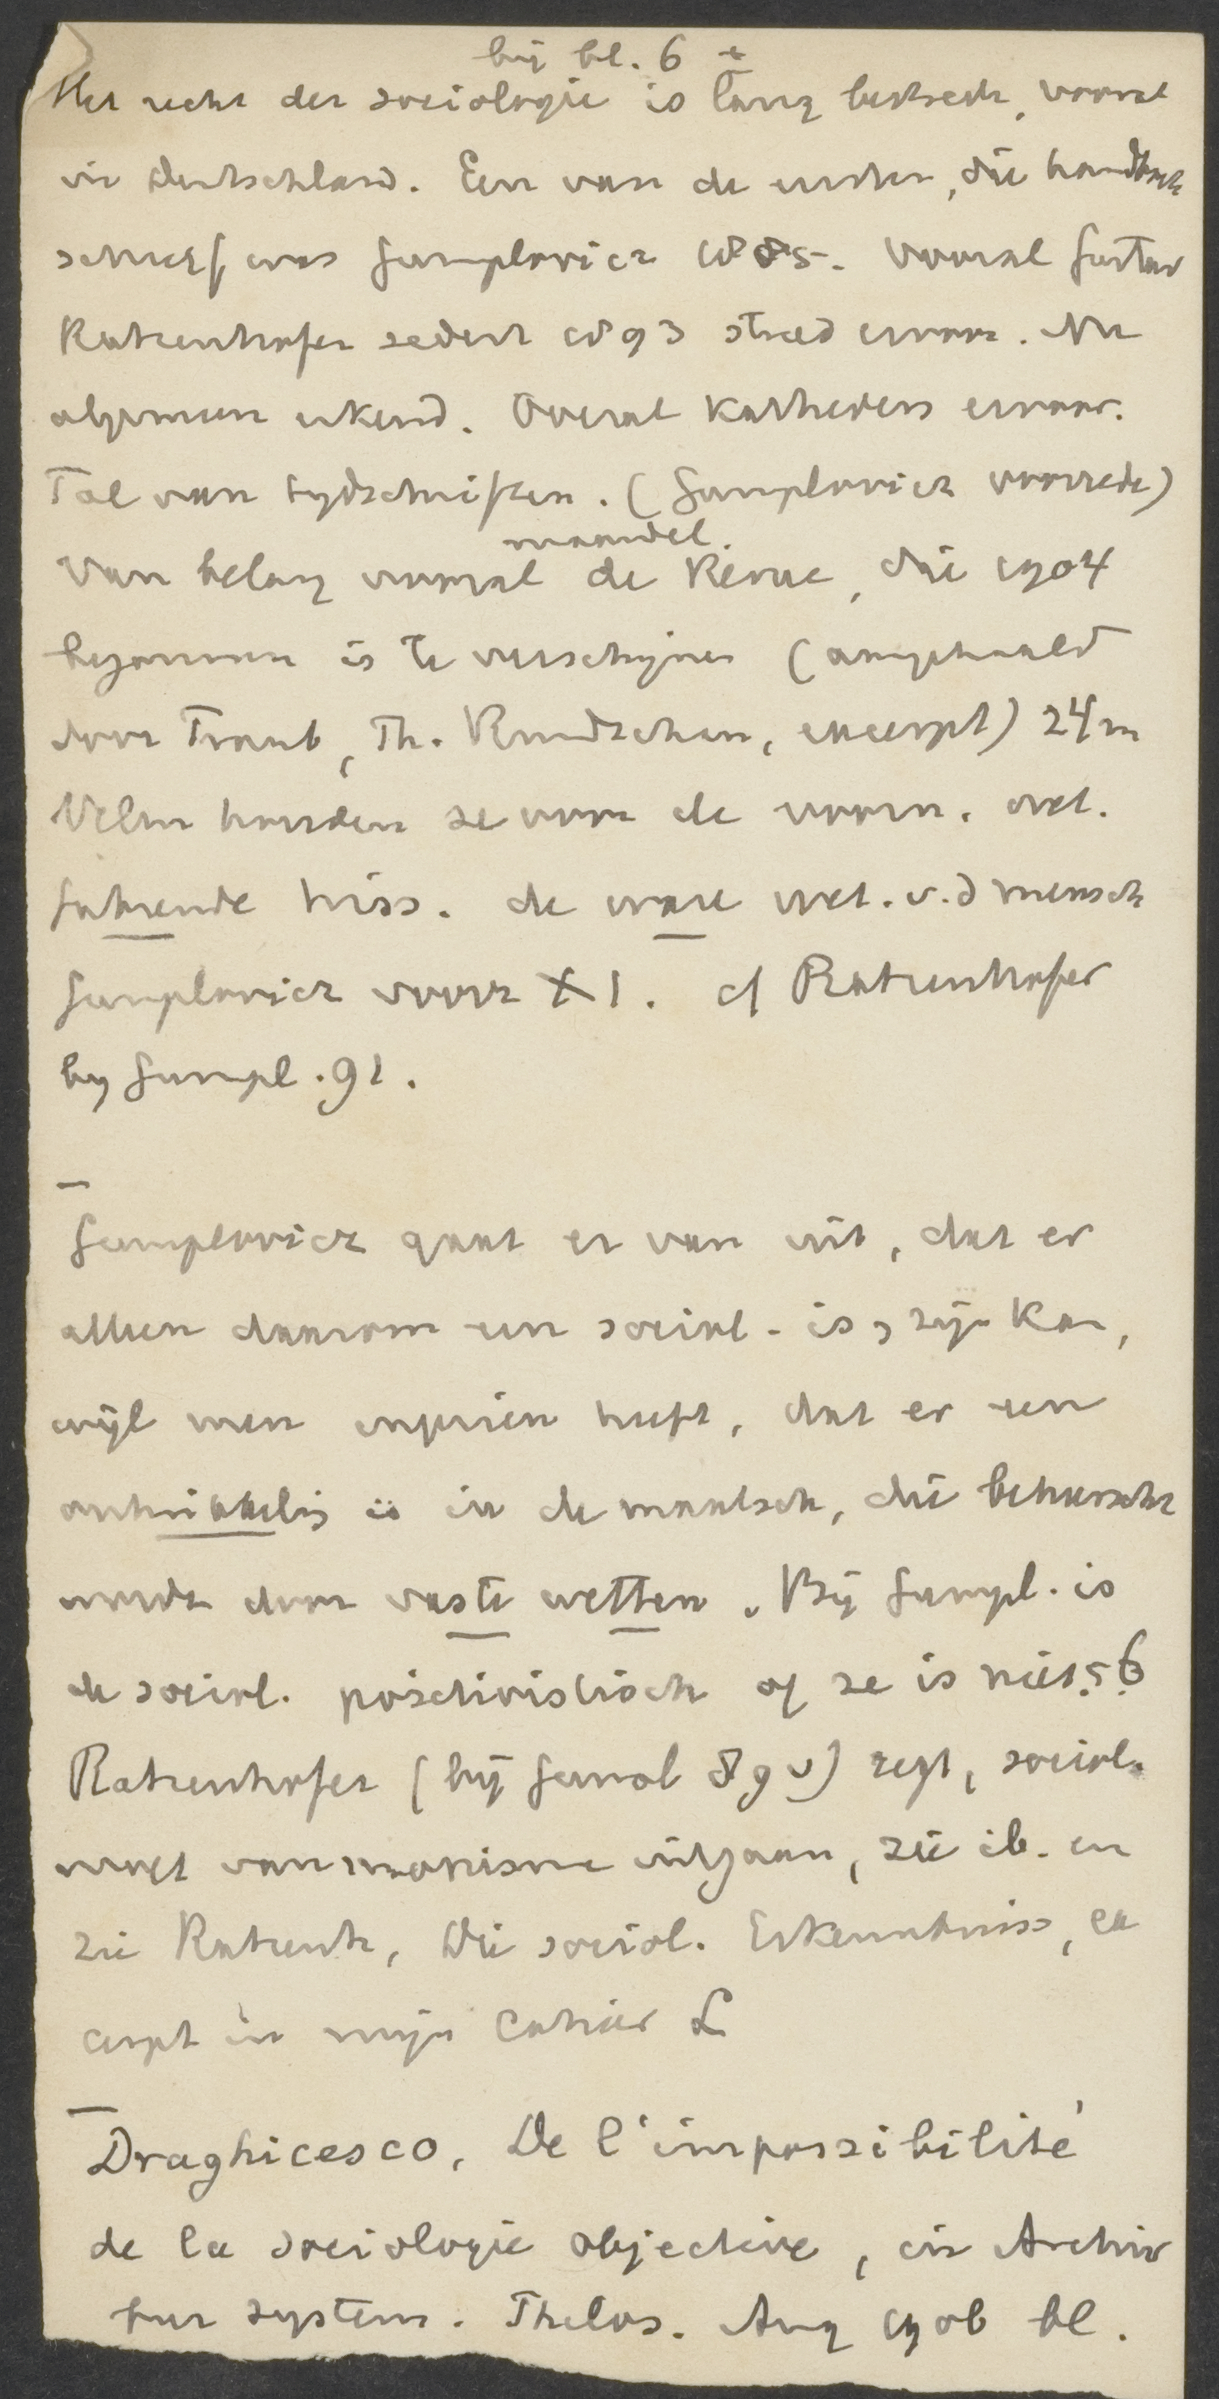 bij bl. 6 +
Het recht der sociologie is lang betwist, vooral
in Deutschland. Een van de eersten, die handboek
schreef, was Gumplovicz 1885. Vooral Gustav
Ratzenhofer sedert 1893 streed ervoor. Nu
algemeen erkend. Overal Katheders ervoor.
Tal van tydschriften. (Gumplovicz voorrede)
maandel.
Van belang vooral de Revue, die 1904
begonnen is te verschijnen (aangehaald
door Traub, Th. Rundschau, excerpt) 24 m
Velen houden ze voor de voorn. wet.
führende Wiss. de ware wet. v. d mensch
Gumplovicz voorr XI. cf Ratzenhofer
by Gumpl. 91.
Gumplovicz gaat er van uit, dat er
alleen daarom een sociol. is, zijn kan,
wijl men ingezien heeft, dat er een
ontwikkeling is in de maatsch, die beheerscht
wordt door vaste wetten. Bij Gumpl. is
de sociol. positivistisch of ze is niet. 56
Ratzenhofer (bij Gumpl 89 v) zegt, sociol.
moet van monisme uitgaan, zie ib. en
zie Ratzenh, Die sociol. Erkenntniss, ex
cerpt in mijn Cahier L
Draghicesco, De l'impossibilité
de la sociologie objective, in Archiv
fur system. Philos. Aug 1906 bl.